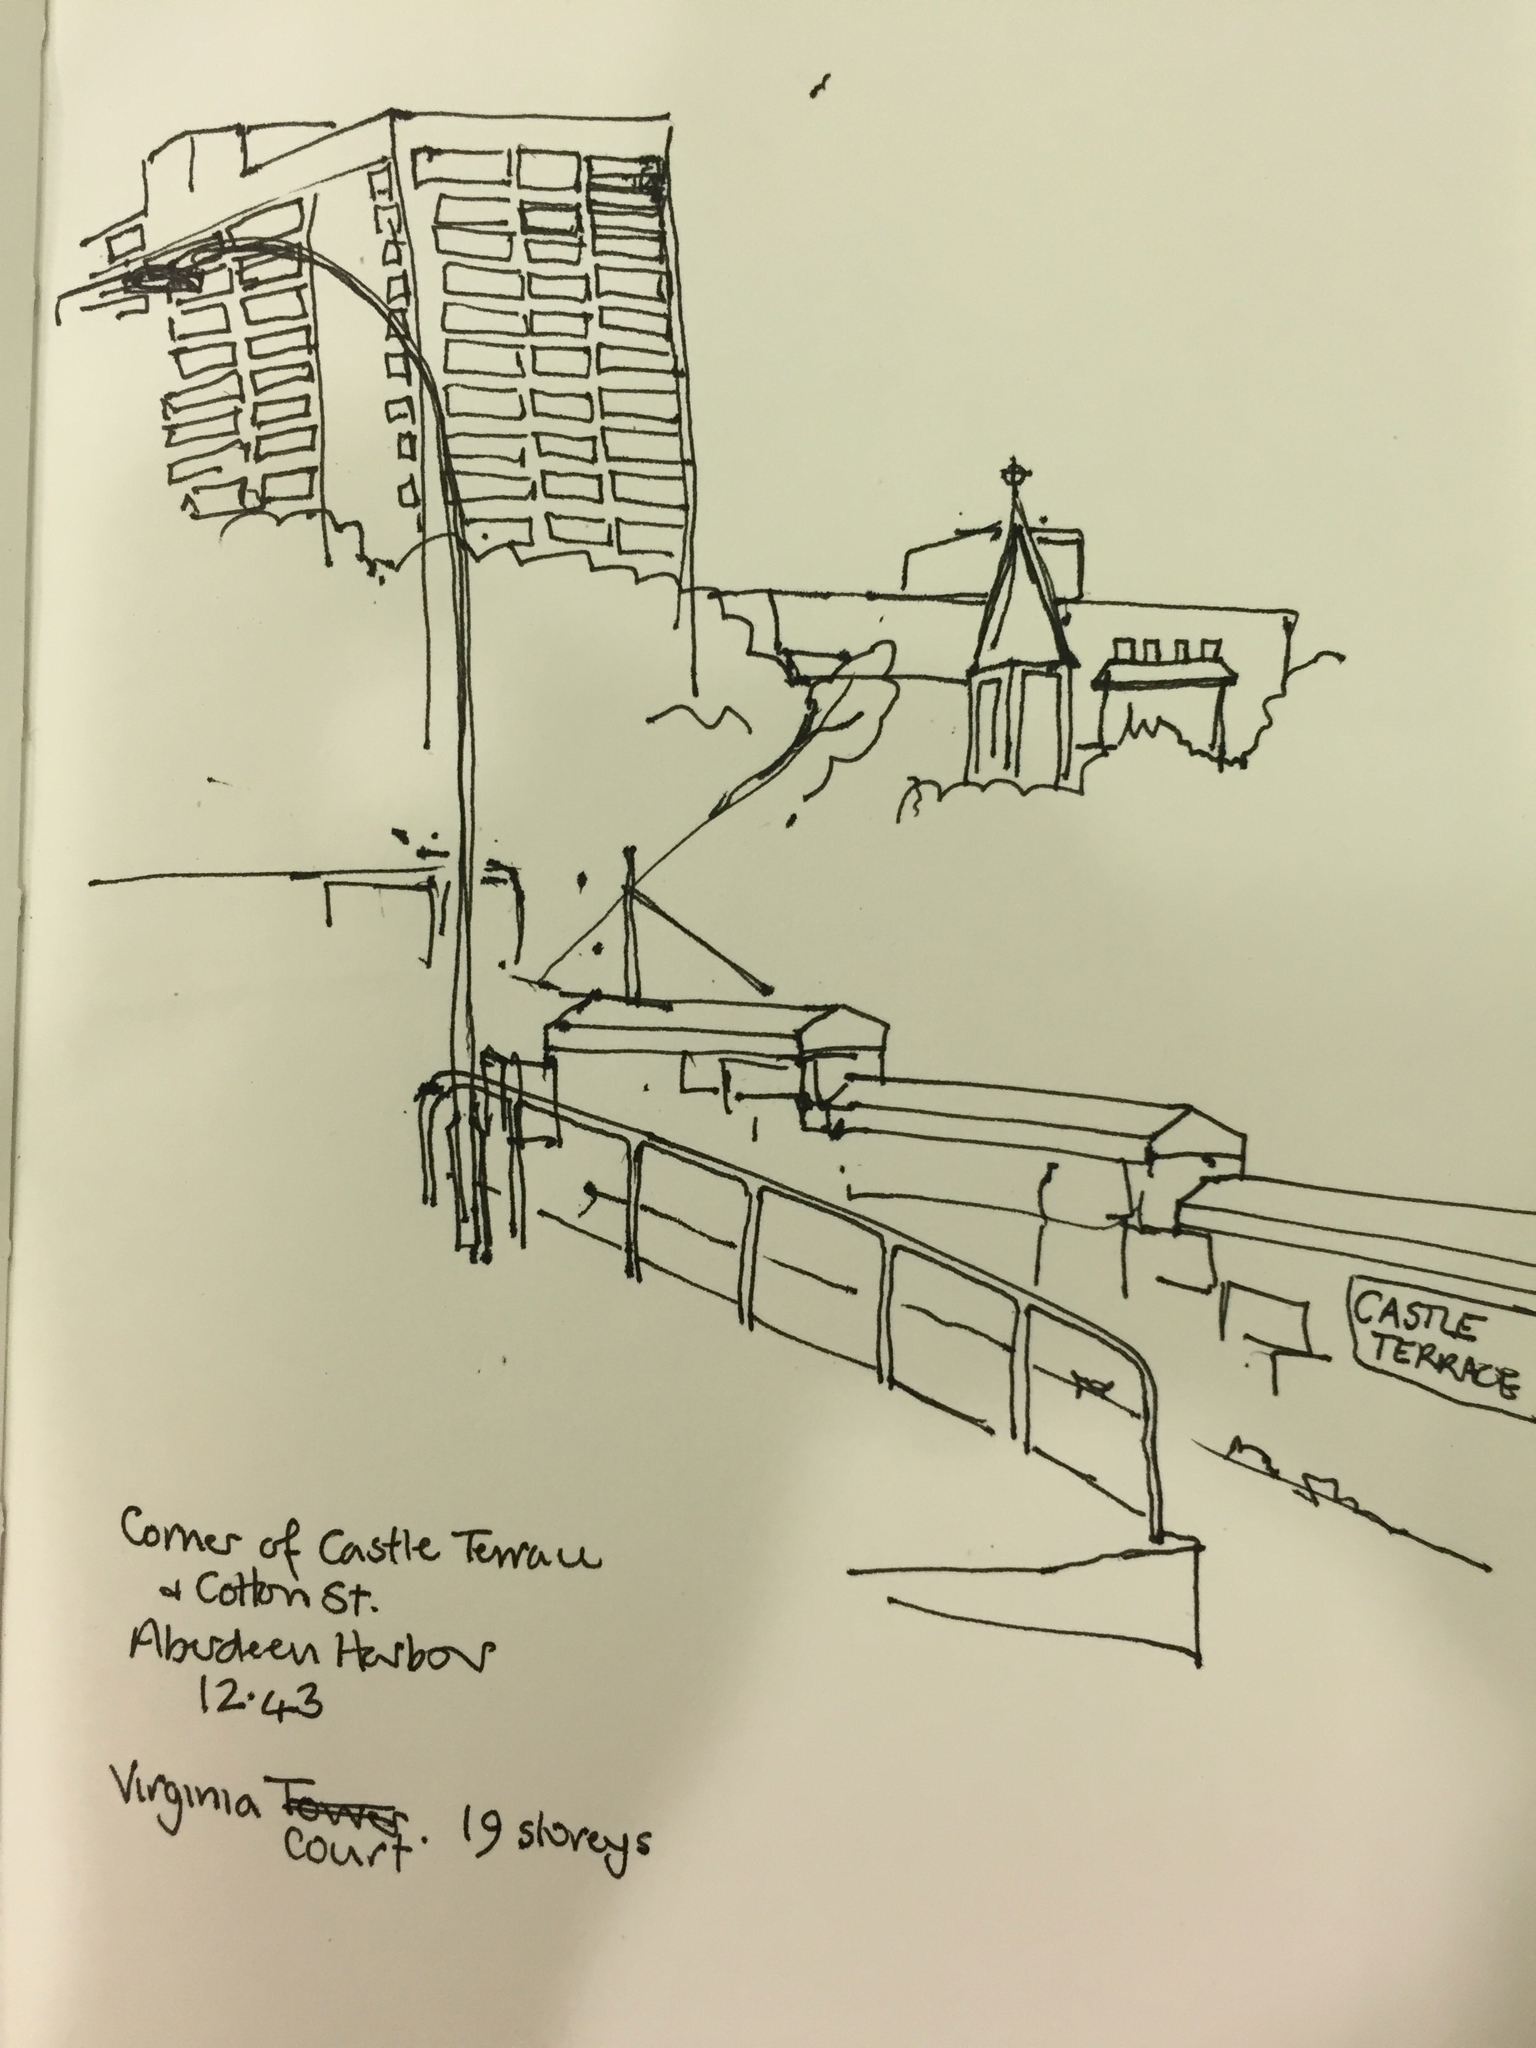 CASTLE
TERRACE
Corner of Castle Terrace
& Cotton St.
Aberdeen Harbor
12.43
Virginia Tower
Court. 19 storeys